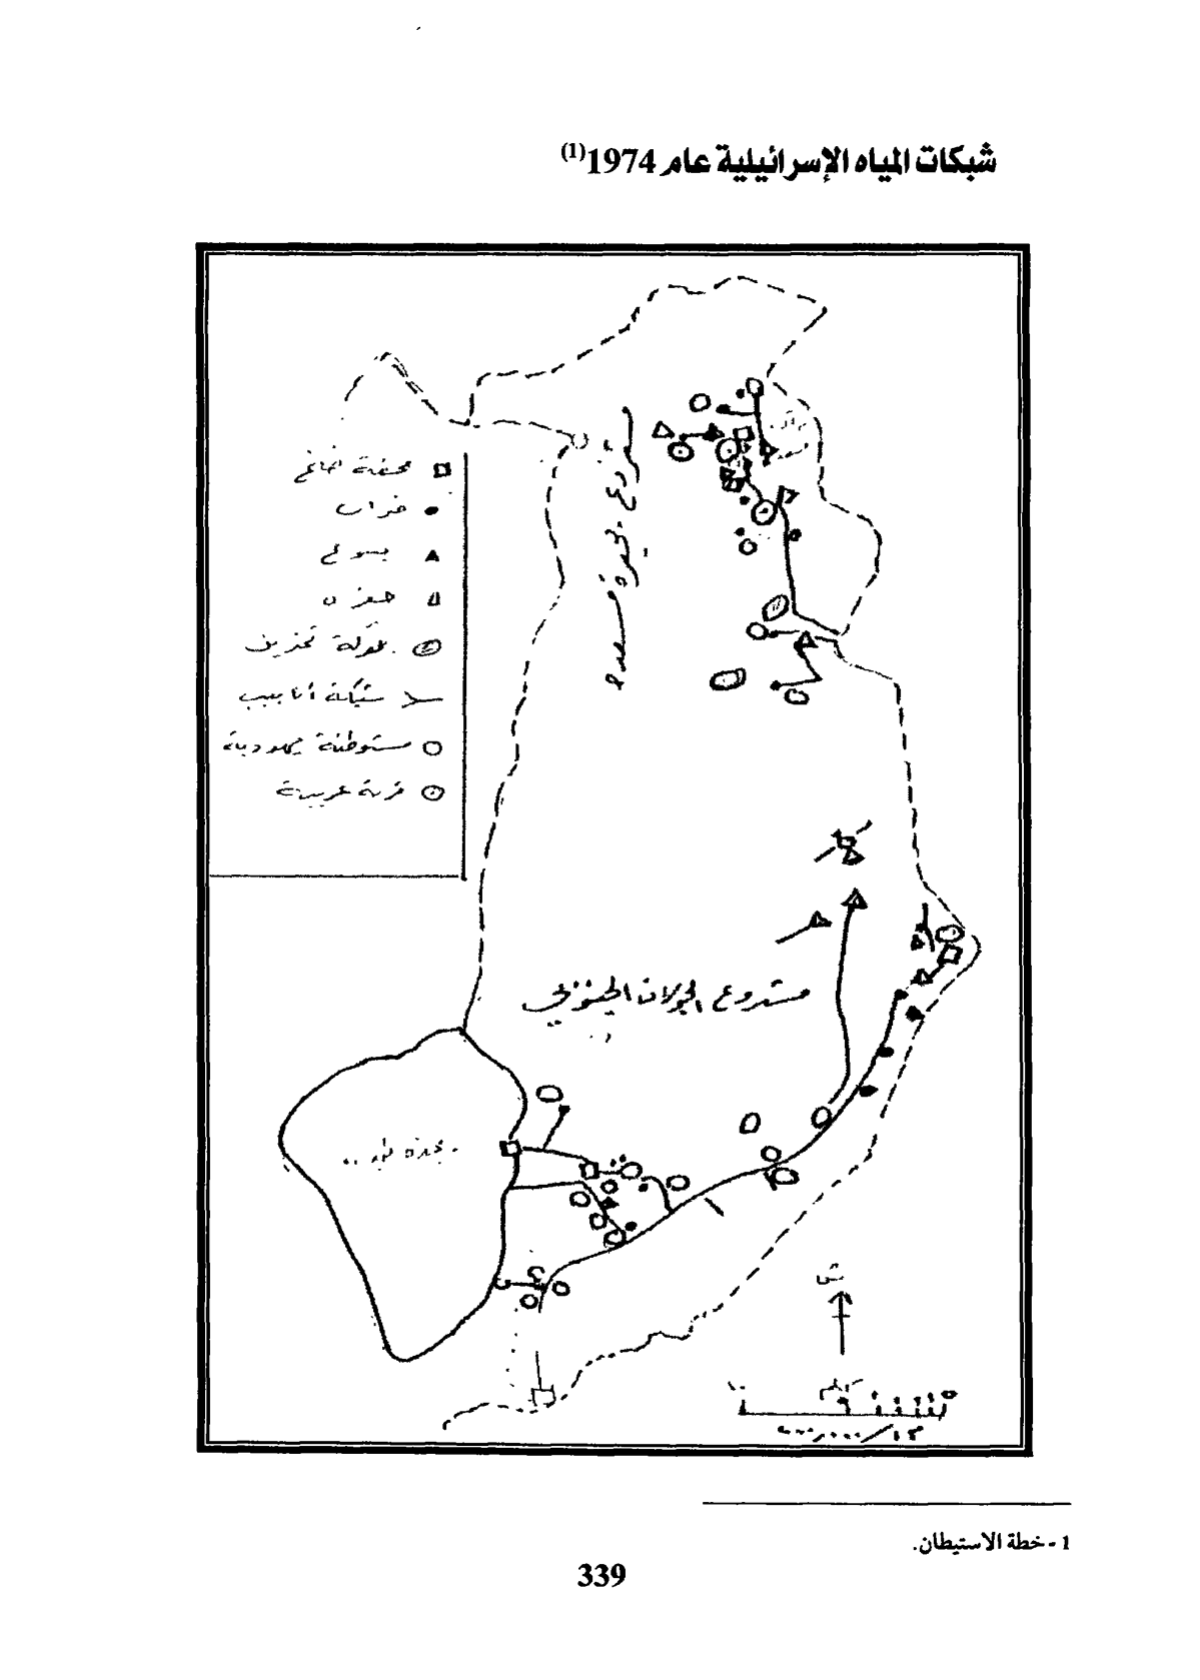 شبكات المياه الإسرائيلية عام 1974(1)
محطة ضخ
خزان
ينبوع
بركة تخزين
شبكة أنابيب
مستوطنة يهودية
قرية عربية
مشروع بحيرة مسعدة
مشروع الجولان الجنوبي
ش
كلم
1 - خطة الاستيطان.
339